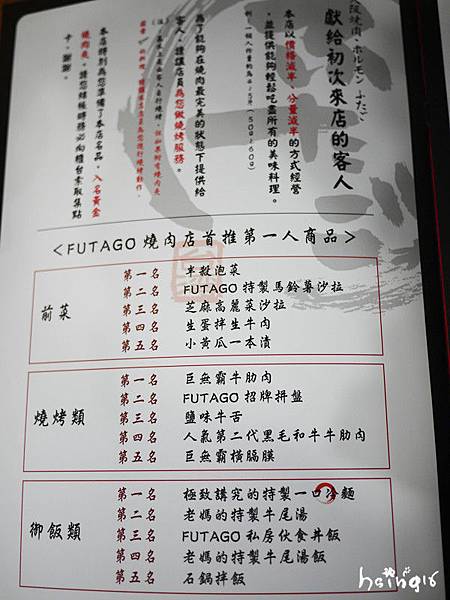 大阪焼肉・ホルモン ふたご
獻給初次來店的客人
本店以價格減半、分量減半的方式經營
，並提供能夠輕鬆吃盡所有的美味料理。
為了能夠在燒肉最完美的狀態下提供給
客人，請讓店員為您做燒烤服務。
本店特別為您準備了本店名品，入名黃金
燒肉夾。請您結帳時務必向櫃台索取集點
卡。謝謝。
＜FUTAGO 燒肉店首推第一人商品＞
前菜
第一名 半敲泡菜
第二名 FUTAGO 特製馬鈴薯沙拉
第三名 芝麻高麗菜沙拉
第四名 生蛋拌生牛肉
第五名 小黃瓜一本漬
燒烤類
第一名 巨無霸牛肋肉
第二名 FUTAGO 招牌拼盤
第三名 鹽味牛舌
第四名 人氣第二代黑毛和牛牛肋肉
第五名 巨無霸橫膈膜
御飯類
第一名 極致講究的特製一口冷麵
第二名 老媽的特製牛尾湯
第三名 FUTAGO 私房伙食丼飯
第四名 老媽的特製牛尾湯飯
第五名 石鍋拌飯
hsing16